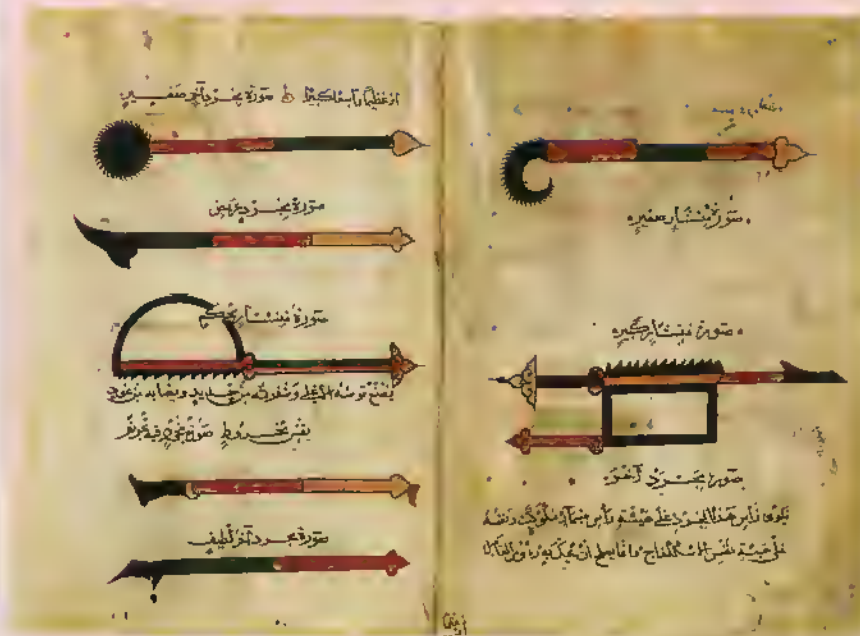 صورة منشار صغير
صورة منشار كبير
صورة مجرد آخر
يكون رأس هذا المجرد على هيئة رأس مسمار مكوكب ونقشه
على هيئة نقش الاسكلفاج وانما يصلح ان يحك به رؤس المفاصل
او عظما واسعا كبيرا صورة مجرد آخر صغير
صورة مجرد عريض
صورة منشار محكم
يصنع قوسه الاعلى وشفرته من حديد ونصابه من عود
بقس مخروط صورة مجرد فيه تجويف
صورة مجرد آخر لطيف